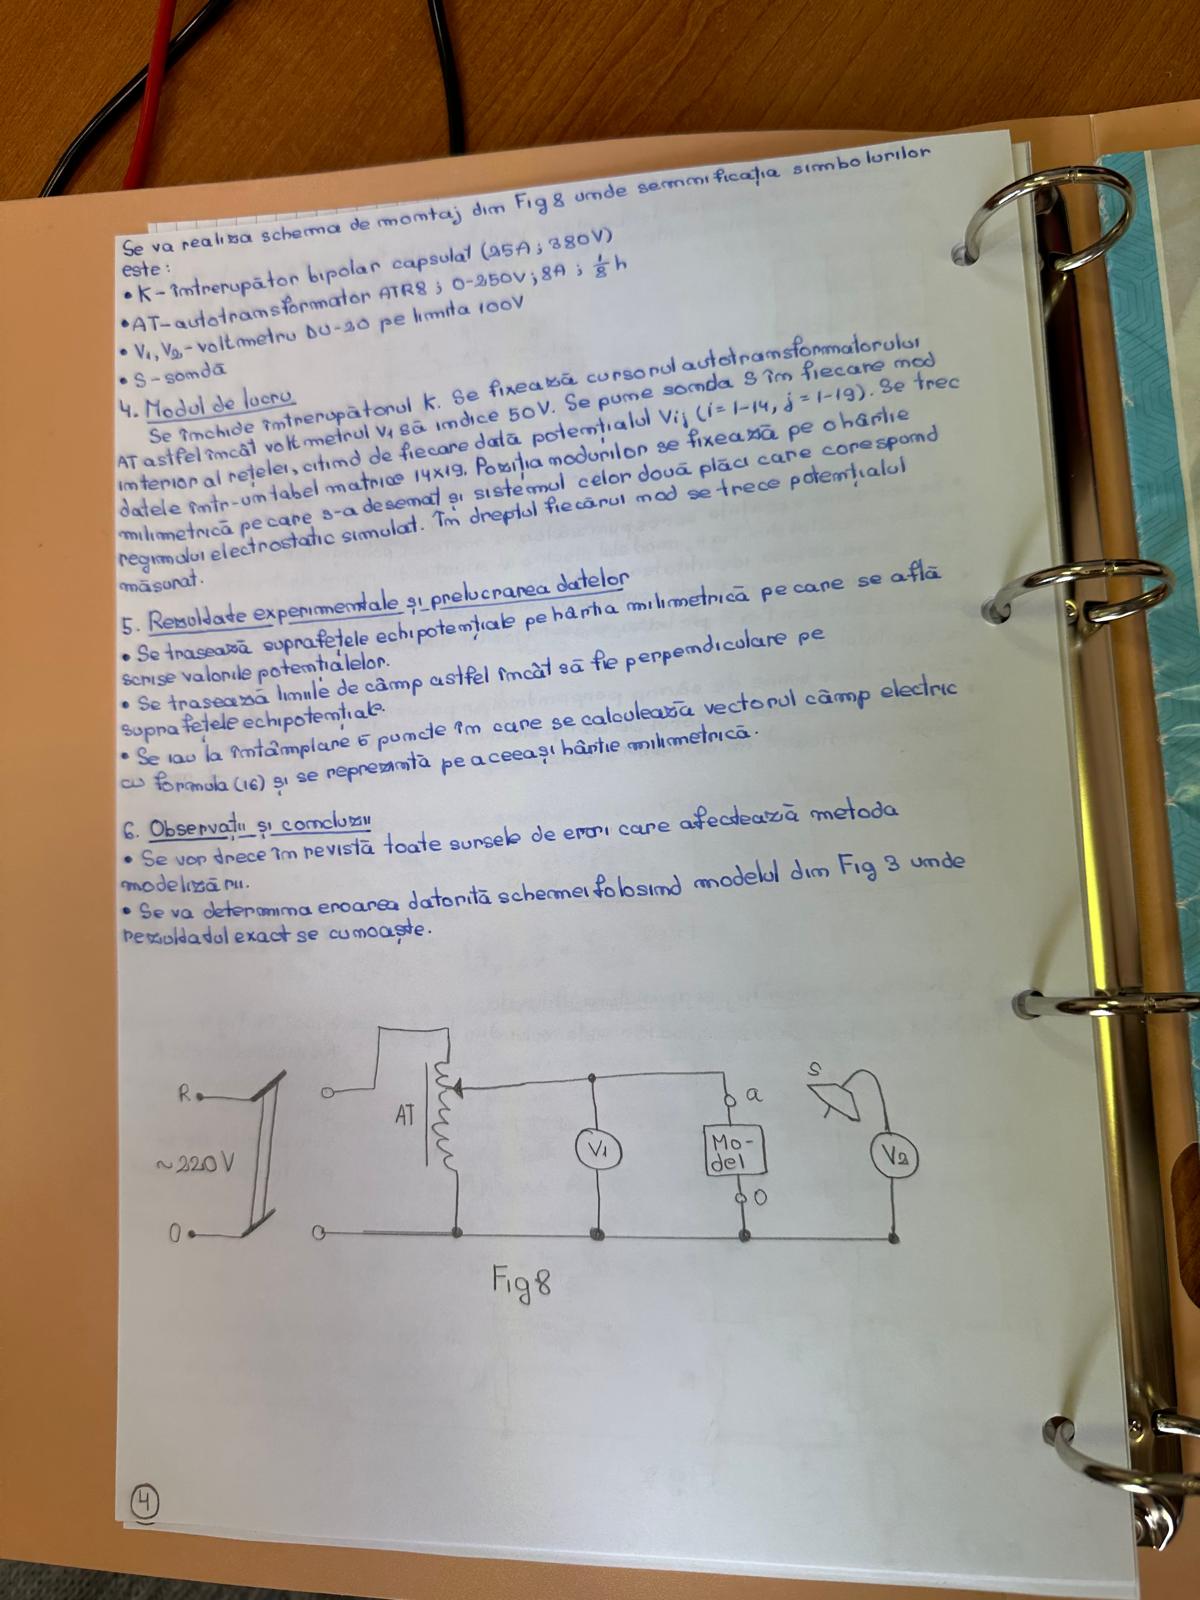 Se va realiza schema de montaj din Fig 8 unde semnificația simbolurilor
este:
• K – întrerupător bipolar capsulat (25A; 380V)
• AT – autotransformator ATR8; 0-250V; 8A; 1/8 h
• V1, V2 – voltmetru DU-20 pe limita 100V
• S – sondă
4. Modul de lucru
Se închide întrerupătorul K. Se fixează cursorul autotransformatorului
AT astfel încât voltmetrul V1 să indice 50V. Se pune sonda S în fiecare nod
interior al rețelei, citind de fiecare dată potențialul Vij (i = 1-14, j = 1-19). Se trec
datele într-un tabel matrice 14x19. Poziția nodurilor se fixează pe o hârtie
milimetrică pe care s-a desenat și sistemul celor două plăci care corespund
regimului electrostatic simulat. În dreptul fiecărui nod se trece potențialul
măsurat.
5. Rezuldate experimentale și prelucrarea datelor
• Se trasează suprafețele echipotențiale pe hârtia milimetrică pe care se află
scrise valorile potențialelor.
• Se trasează liniile de câmp astfel încât să fie perpendiculare pe
suprafețele echipotențiale.
• Se iau la întâmplare 5 puncte în care se calculează vectorul câmp electric
cu formula (16) și se reprezintă pe aceeași hârtie milimetrică.
6. Observații și concluzii
• Se vor drece în revistă toate sursele de erori care afectează metoda
modelizării.
• Se va determina eroarea datorită schemei folosind modelul din Fig 3 unde
rezuldadul exact se cunoaște.
R
~220V
0
AT
V1
a
Mo-
del
0
S
V2
Fig 8
4